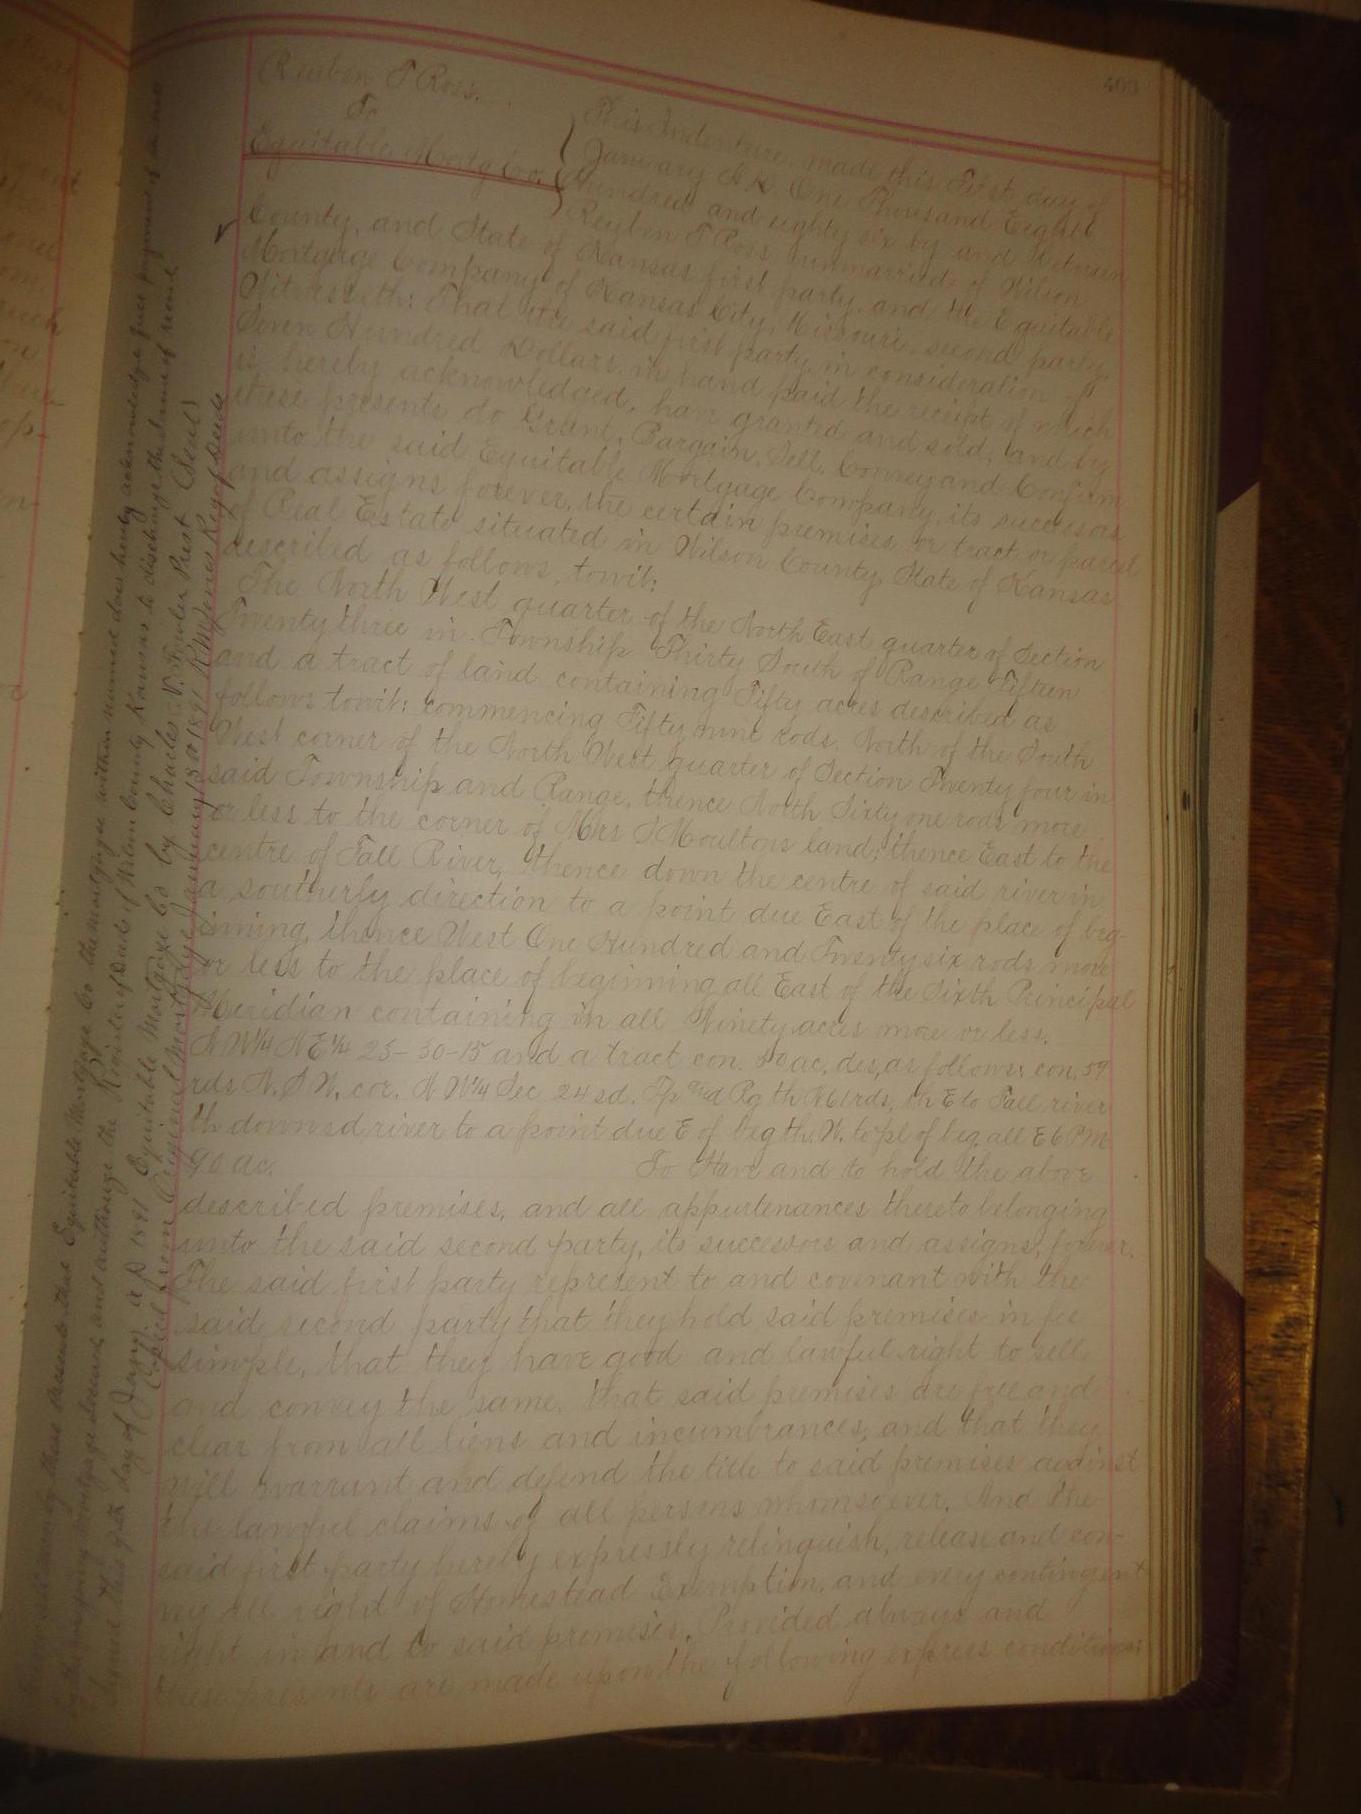 403
Reuben T Ross.
To
Equitable Mortg Co.
This Indenture made this First day of
January A.D. One Thousand Eight
Hundred and eighty six by and between
Reuben T Ross unmarried of Wilson
County, and State of Kansas first party, and the Equitable
Mortgage Company of Kansas City, Missouri, second party,
Witnesseth: That the said first party, in consideration of
Seven Hundred Dollars, in hand paid the receipt of which
is hereby acknowledged, have granted and sold, and by
these presents do Grant, Bargain, Sell, Convey and Confirm
unto the said Equitable Mortgage Company, its successors
and assigns forever, the certain premises or tract or parcel
of Real Estate situated in Wilson County, State of Kansas
described as follows, towit:
The North West quarter of the North East quarter of Section
Twenty three in Township Thirty South of Range Fifteen
and a tract of land containing Fifty acres described as
follows towit: commencing Fifty nine rods North of the South
West corner of the North West quarter of Section Twenty four in
said Township and Range, thence North Sixty one rods more
or less to the corner of Mrs S Moultons land; thence East to the
centre of Fall River, thence down the centre of said river in
a southerly direction to a point due East of the place of beg-
inning, thence West One Hundred and Twenty six rods more
or less to the place of beginning all East of the Sixth Principal
Meridian containing in all Ninety acres more or less.
N W¼ N E¼ 23-30-15 and a tract con. 50 ac, des, as follows: con. 59
rds N. S W. cor. N W¼ Sec 24 sd. Tp and Rg th N 61 rds, th E to Fall river
th down sd river to a point due E of beg th W. to pl of beg all E 6 P M
90 ac. To Have and to hold the above
described premises, and all appurtenances thereto belonging
unto the said second party, its successors and assigns, forever.
The said first party represent to and covenant with the
said second party that they hold said premises in fee
simple, that they have good and lawful right to sell
and convey the same, that said premises are free and
clear from all liens and incumbrances, and that they
will warrant and defend the title to said premises against
the lawful claims of all persons whomsoever. And the
said first party hereby expressly relinquish, release and con-
vey all right of Homestead Exemption, and every contingent
right in and to said premises. Provided always and
these presents are made upon the following express conditions:
Know all men by these presents that Equitable Mortgage Co the mortgagee within named does hereby acknowledge full payment of the note
by the foregoing mortgage secured, and authorize the Register of Deeds of Wilson County Kansas to discharge the same of record
Signed this 9th day of Jany A D 1891 Equitable Mortgage Co by Charles N. Fowler Prest (Seal)
Copied from Original Mortgage January 1891 Reg of Deeds